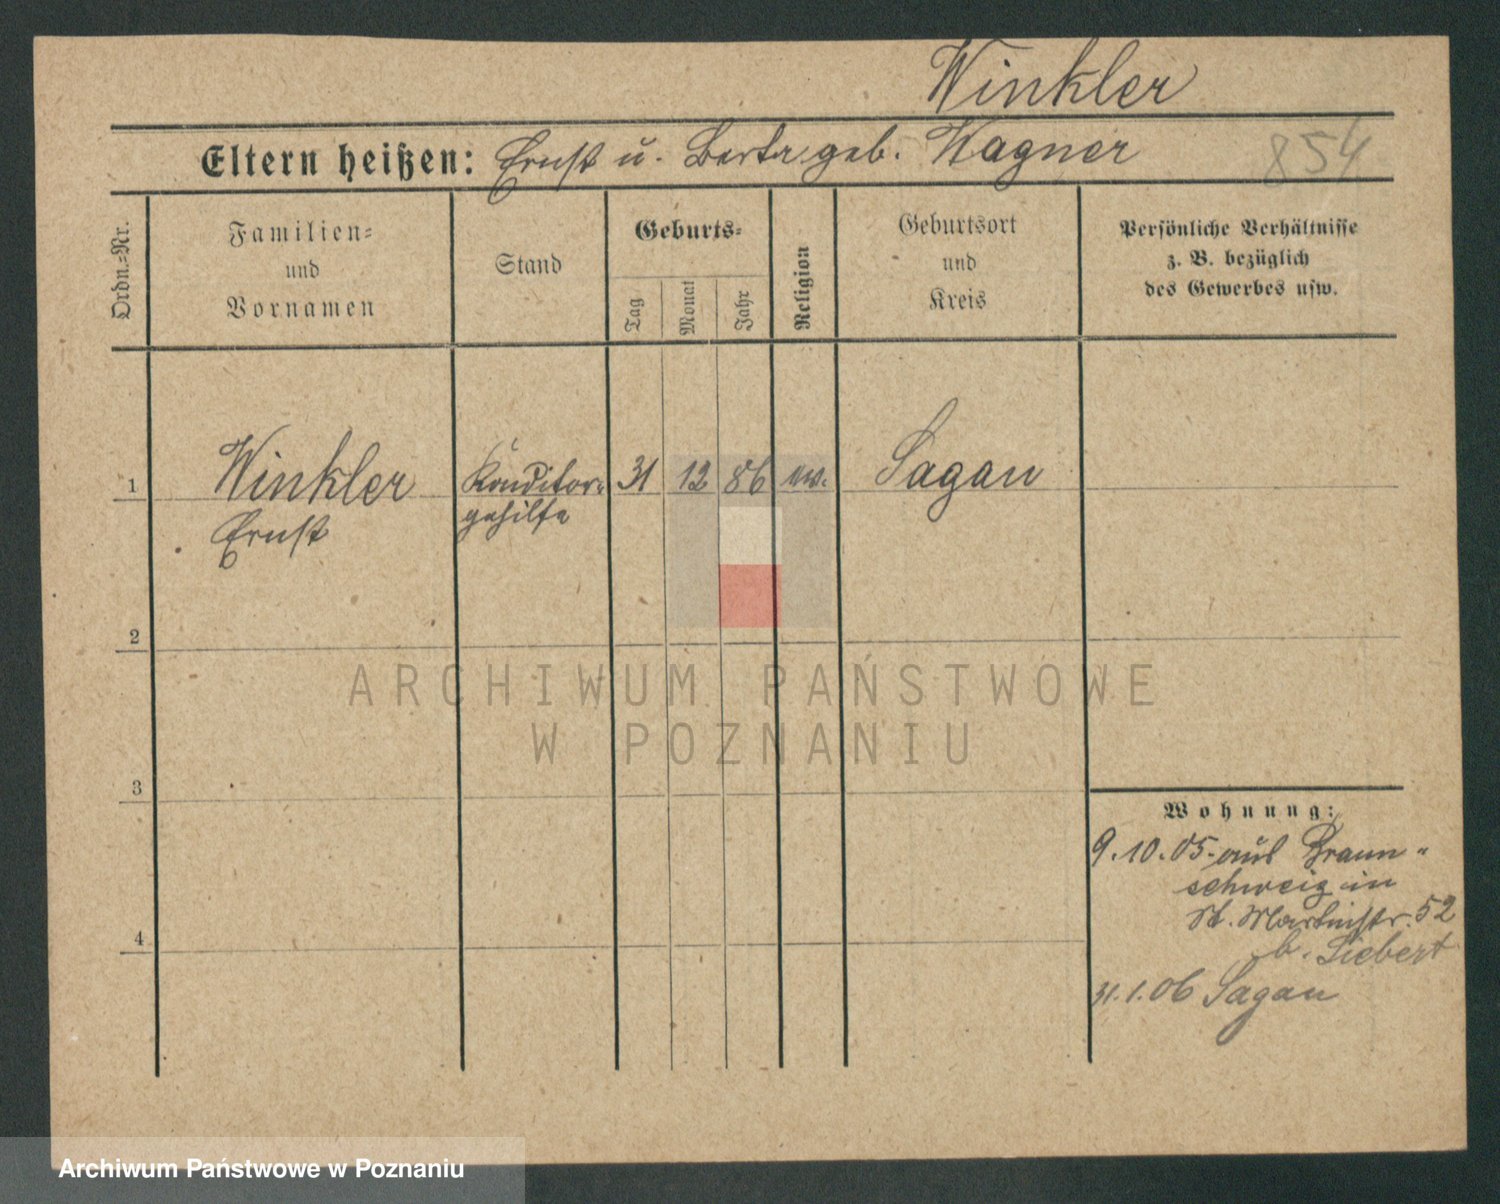 Winkler
Eltern heißen: Ernst u. Berta geb. Wagner
854
Ordn.=Nr.
Familien=
und
Vornamen
Stand
Geburts=
Tag
Monat
Jahr
Religion
Geburtsort
und
Kreis
Persönliche Verhältnisse
z. B. bezüglich
des Gewerbes usw.
1 Winkler Konditor= 31 12 86 ev. Sagan
Ernst gehilfe
2
ARCHIWUM PAŃSTWOWE
W POZNANIU
3
Wohnung:
9.10.05. aus Braun"
schweig in
St. Martinstr. 52
b. Siebert
4
31.1.06 Sagan
Archiwum Państwowe w Poznaniu